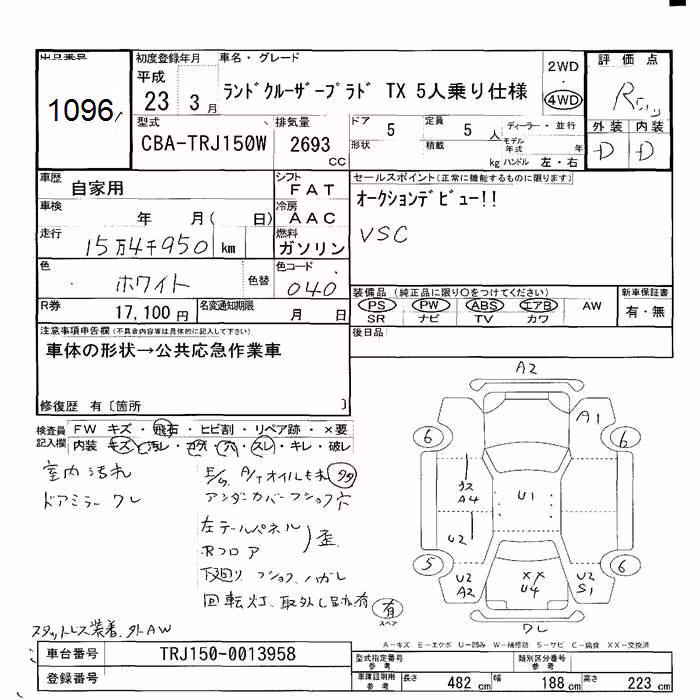 出品番号
1096
初度登録年月
平成
23 3月
車名・グレード
ランドクルーザープラド TX 5人乗り仕様
2WD
・
4WD
評価点
外装 内装
D D
型式
CBA-TRJ150W
排気量
2693
CC
ドア 5
定員 5 人
ディーラー・並行
形状
積載
kg
モデル年式 年
ハンドル 左・右
車歴
自家用
シフト
FAT
車検
年 月( 日)
冷房
AAC
走行
15万4千950 km
燃料
ガソリン
セールスポイント(正常に機能するものに限ります)
オークションデビュー!!
VSC
色
ホワイト
色替
色コード
040
R券
17,100円
名変通知期限
月 日
装備品 (純正品に限り○をつけてください)
PS PW ABS エアB AW
SR ナビ TV カワ
新車保証書
有・無
注意事項申告欄(不具合内容等は具体的に記入して下さい)
車体の形状→公共応急作業車
修復歴 有〔箇所 〕
後日品
検査員記入欄
FW キズ・飛石・ヒビ割・リペア跡・×要
内装 キズ・汚レ・コゲ・穴・スレ・キレ・破レ
室内汚れ
ドアミラー ワレ
E/g A/Tオイルモレ 多々
アンダーカバー フショク穴
左テールパネル
Rフロア
歪
下廻り フショク、ハガレ
回転灯、取外し跡有
有
スペア
スタットレス装着、外AW
A2
A1
6
6
A4
U1
U2
5
6
U2
A2
XX
U4
U2
S1
ワレ
A-キズ E-エクボ U-凹み W-補修跡 S-サビ C-腐食 XX-交換済
車台番号
TRJ150-0013958
登録番号
型式指定番号
参考
類別区分番号
参考
車庫証明用
参考
長さ 482 cm 幅 188 cm 高さ 223 cm